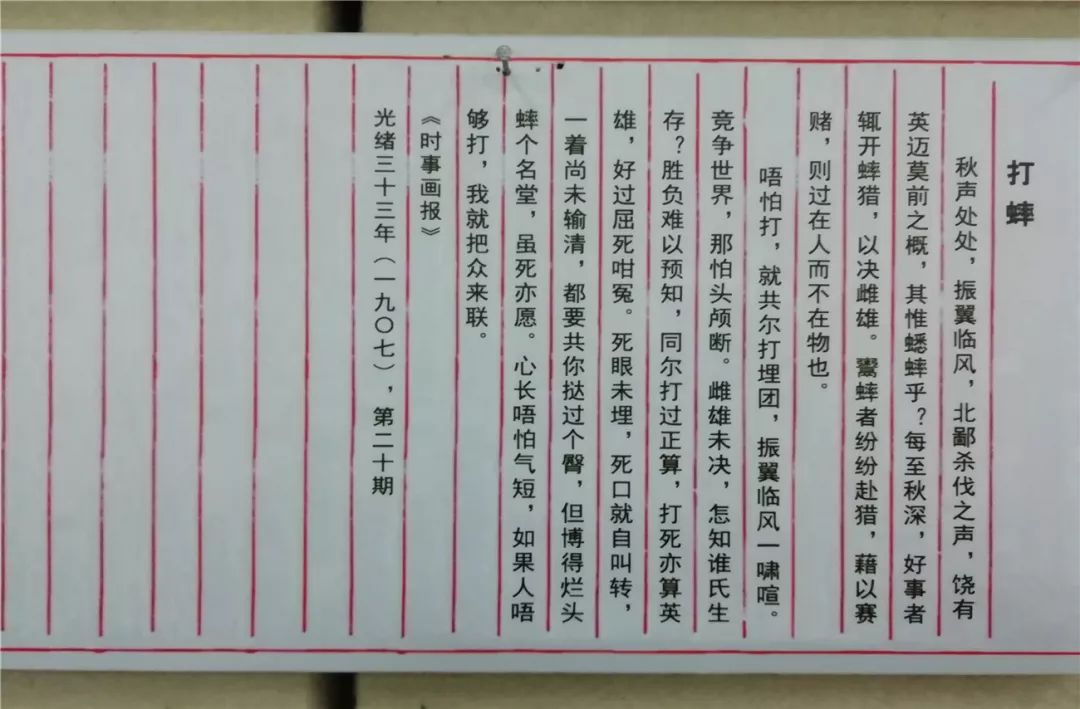 打蟀
秋声处处，振翼临风，北鄙杀伐之声，饶有
英迈莫前之概，其惟蟋蟀乎？每至秋深，好事者
辄开蟀猎，以决雌雄。鬻蟀者纷纷赴猎，藉以赛
赌，则过在人而不在物也。
唔怕打，就共尔打埋团，振翼临风一啸喧。
竞争世界，那怕头颅断。雌雄未决，怎知谁氏生
存？胜负难以预知，同尔打过正算，打死亦算英
雄，好过屈死咁冤。死眼未埋，死口就自叫转，
一着尚未输清，都要共你挞过个臀，但博得烂头
蟀个名堂，虽死亦愿。心长唔怕气短，如果人唔
够打，我就把众来联。
《时事画报》
光绪三十三年（一九〇七），第二十期